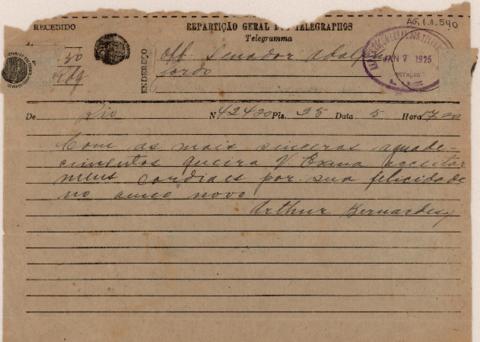 AG.1.1.590
RECEBIDO
REPARTIÇÃO GERAL DOS TELEGRAPHOS
Telegramma
ENDEREÇO
Off Senador Adolpho
Gordo
JAN 7 1925
De Rio N. 42400 Pls. 25 Data 5 Hora 17.00
Com as mais sinceras agrade-
cimentos queira V Excia acceitar
meus cordiaes por sua felicidade
no anno novo
Arthur Bernardes